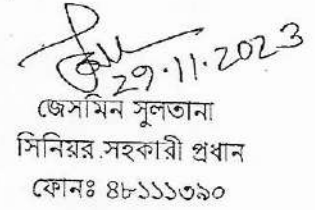 29.11.2023
জেসমিন সুলতানা
সিনিয়র সহকারী প্রধান
ফোনঃ ৪৮১১১৩৯০